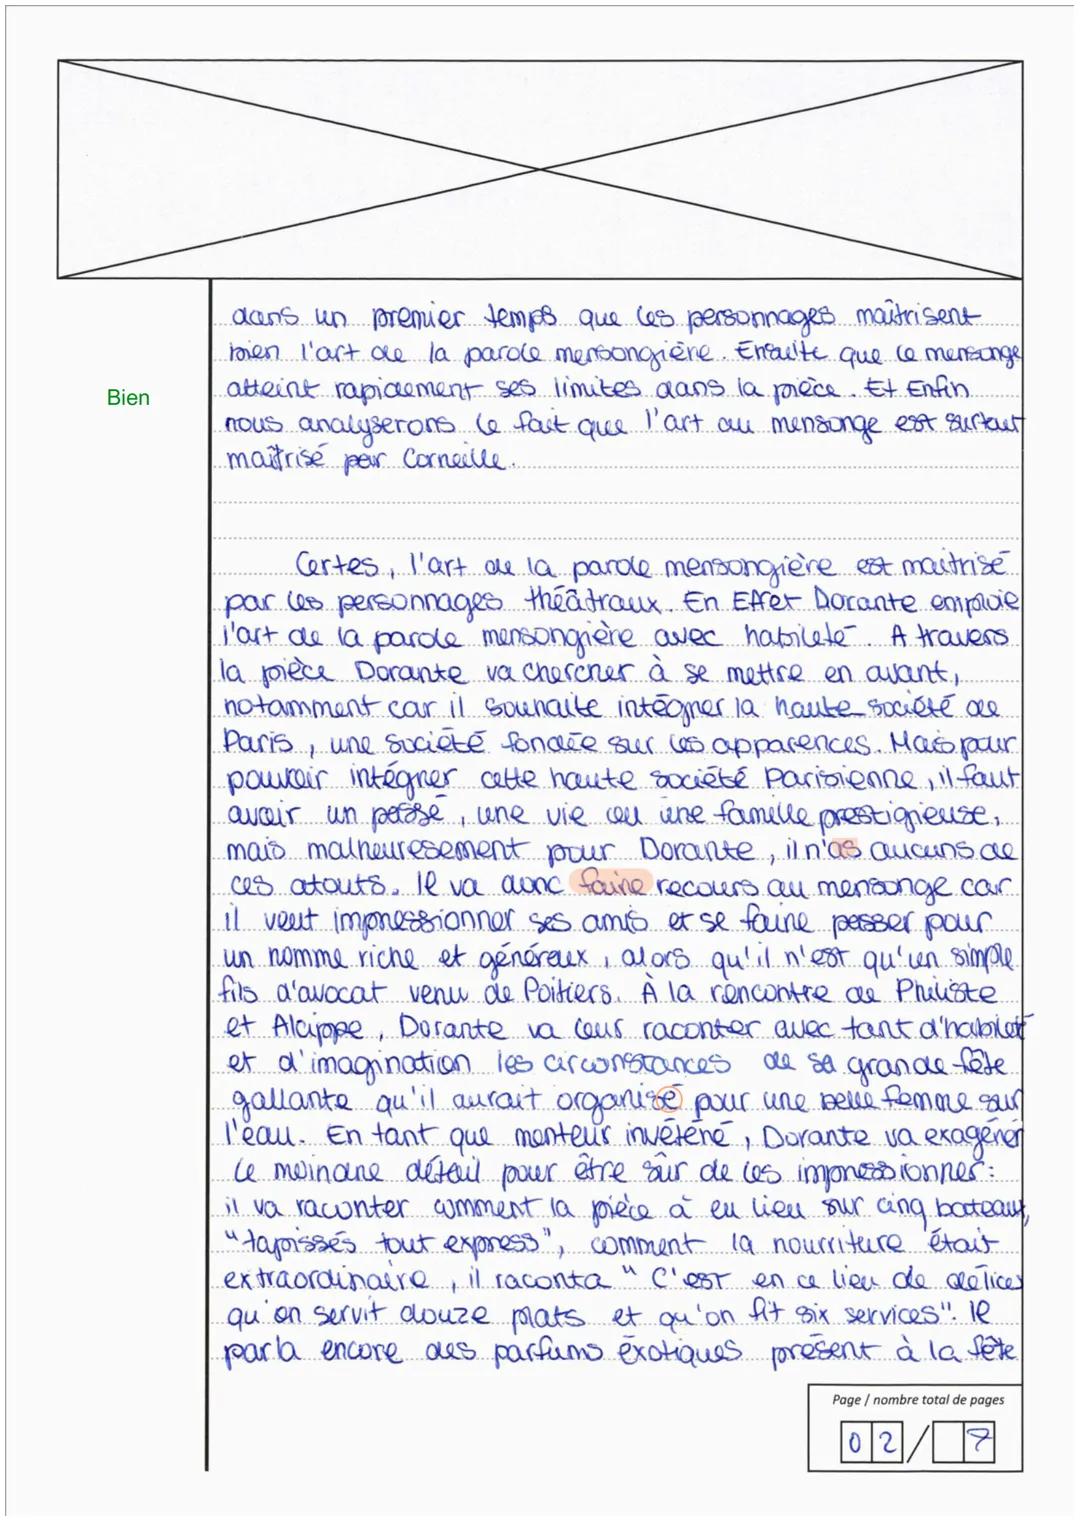 dans un premier temps que les personnages maîtrisent
bien l'art de la parole mensongière. Ensuite que le mensonge
Bien
atteint rapidement ses limites dans la pièce. Et Enfin
nous analyserons le fait que l'art du mensonge est surtout
maîtrisé par Corneille.
Certes, l'art de la parole mensongière est maitrisé
par les personnages théâtraux. En Effet Dorante emploie
l'art de la parole mensongière avec habileté. A travers
la pièce Dorante va chercher à se mettre en avant,
notamment car il souhaite intégner la haute société de
Paris, une société fondée sur les apparences. Mais pour
pouvoir intégner cette haute société Parisienne, il faut
avoir un passé, une vie ou une famille prestigieuse,
mais malheuresement pour Dorante, il n'as aucuns de
ces atouts. Il va donc faine recours au mensonge car
il veut impnessionner ses amis et se faine passer pour
un homme riche et généreux, alors qu'il n'est qu'un simple
fils d'avocat venu de Poitiers. À la rencontre de Philiste
et Alcippe, Dorante va leur raconter avec tant d'habileté
et d'imagination les circonstances de sa grande fête
gallante qu'il aurait organisé pour une belle femme sur
l'eau. En tant que menteur invéténé, Dorante va exagéner
le moindne détail pour être sûr de les impnessionner:
il va raconter comment la pièce à eu lieu sur cinq bateaux,
"tapissés tout express", comment la nourriture était
extraordinaire, il raconta " C'est en ce lieu de délices
qu'on servit douze plats et qu'on fit six services". Il
parla encore des parfums éxotiques présent à la fête
Page / nombre total de pages
02 / 7